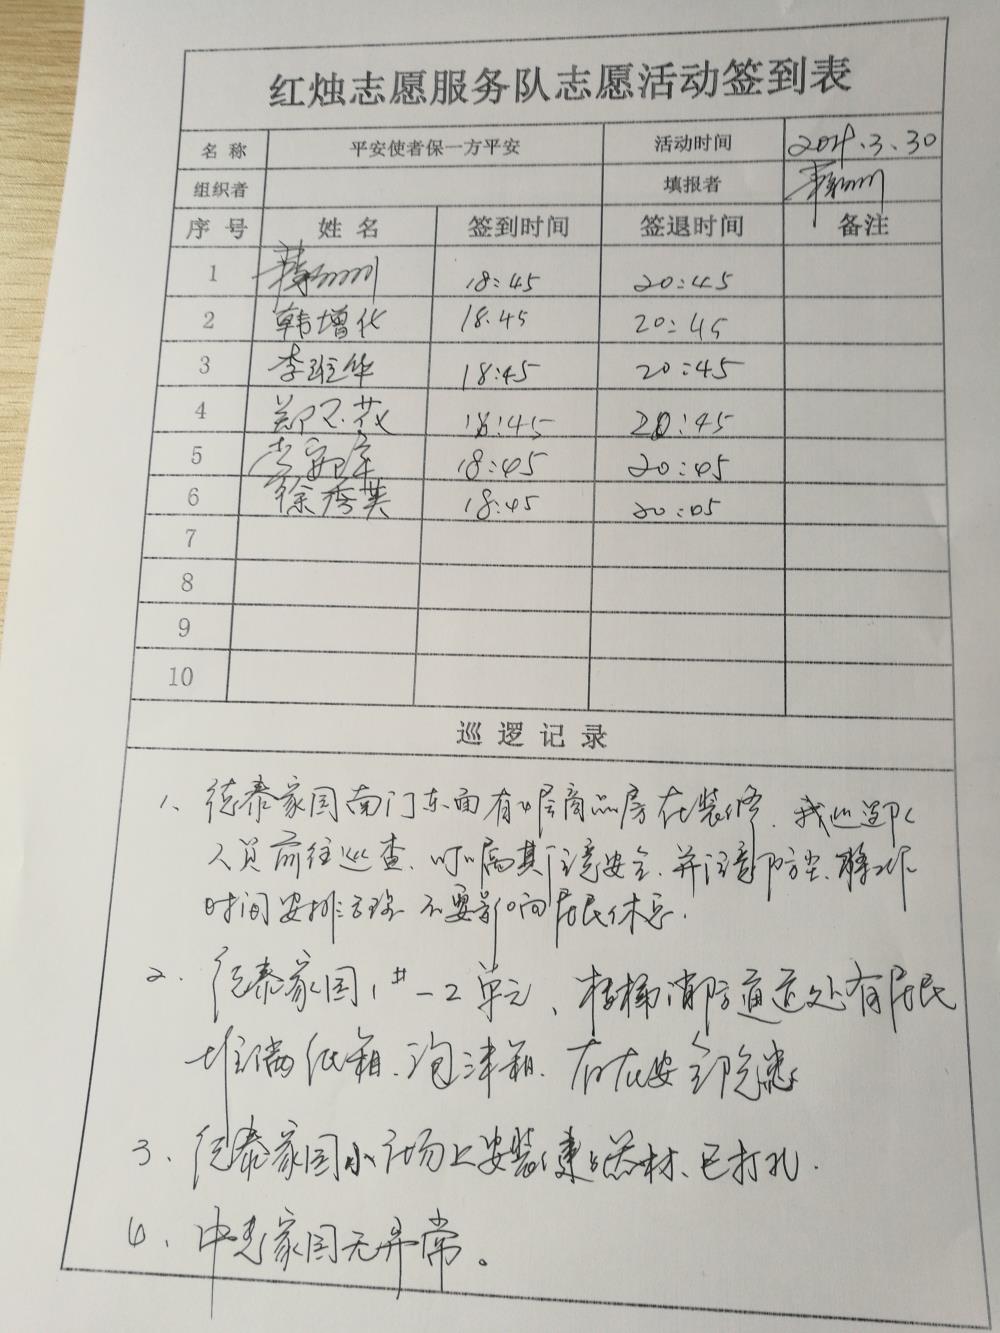 红烛志愿服务队志愿活动签到表
名称 平安使者保一方平安 活动时间 .3.30
组织者 填报者
序号 姓名 签到时间 签退时间 备注
1 18:45 20:45
2 韩增化 18.45 20:45
3 李 华 18:45 20:45
4 郑 18:45 20:45
5 李 18:45 20:45
6 徐秀英 18:45 20:05
7
8
9
10
巡逻记录
1、德泰家园南门东面有 商品房在装修.我巡逻队
人员前往巡查.叮嘱其注意安全.并注意防尘.
时间安排 不要影响居民休息.
2.德泰家园1#-2单元、楼梯消防通道处有居民
堆满纸箱.泡沫箱.存在安全隐患
3、德泰家园小广场上安装健身器材、已打孔.
4、中 家园无异常。